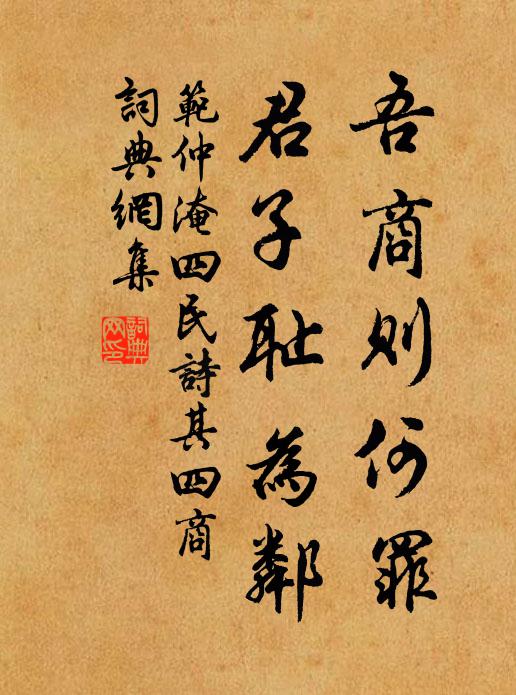 吾商則何罪
君子耻為鄰
範仲淹四民詩其四商
詞典網集
詞典
网印